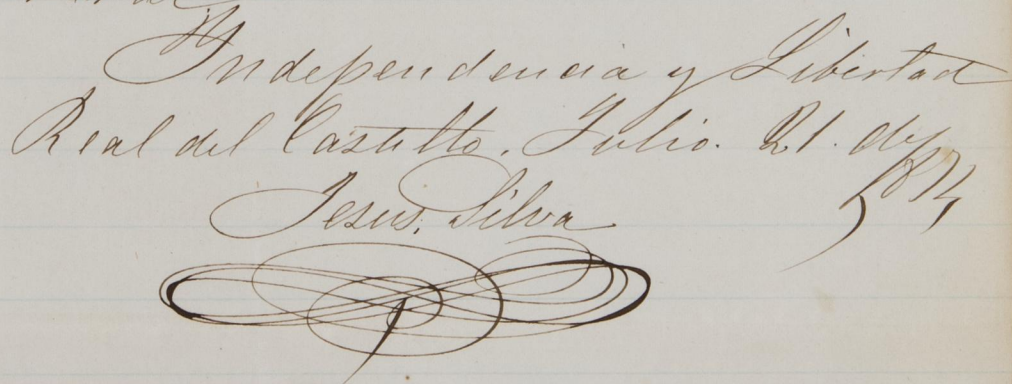 Independencia y Libertad
Real del Castillo. Julio. 21. de
Jesus. Silva